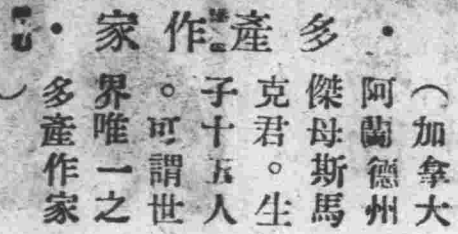 ・多產作家・
（加拿大
阿蘭德州
傑母斯馬
克君。生
子十五人
。可謂世
界唯一之
多產作家
）